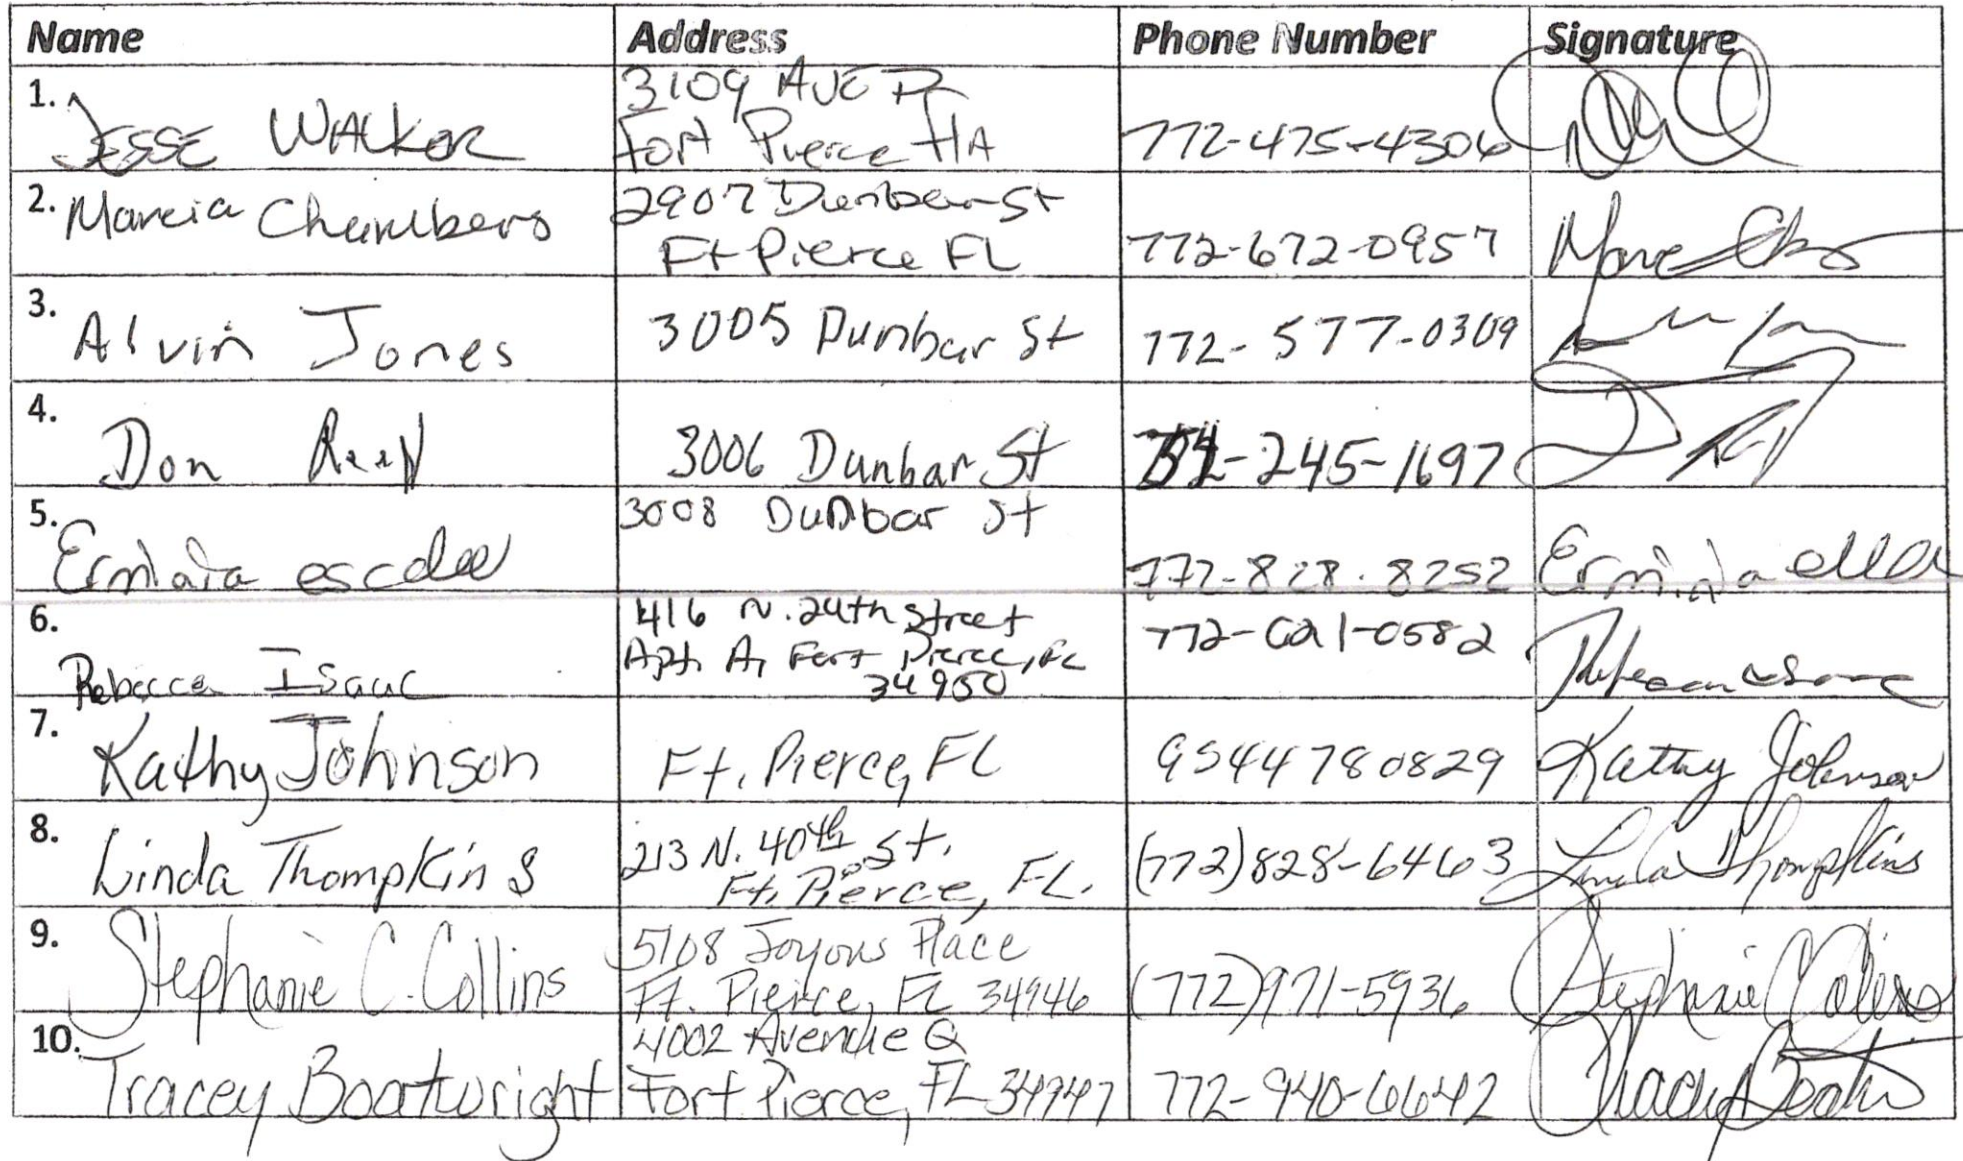 Name Address Phone Number Signature
1. Jesse Walker 3109 Ave D
Fort Pierce FlA 772-475-4306
2. Marcia Chambers 2907 Dunbar St
Ft Pierce FL 772-672-0957
3. Alvin Jones 3005 Dunbar St 772-577-0309
4. Don 3006 Dunbar St -245-1697
5. 3008 Dunbar St
772-828-8252
6. Rebecca Isaac 416 N. 24th Street
Apt. A, Fort Pierce, FL
34950 772-621-0582
7. Kathy Johnson Ft. Pierce, FL 9544780829 Kathy Johnson
8. Linda Thompkins 213 N. 40th St.
Ft. Pierce, FL. (772)828-6463 Linda Thompkins
9. Stephanie C. Collins 5108 Joyous Place
Ft. Pierce, FL 34946 (772)971-5936 Stephanie C Collins
10. Tracey Boatwright 4002 Avenue Q
Fort Pierce, FL 34947 772-940-6642